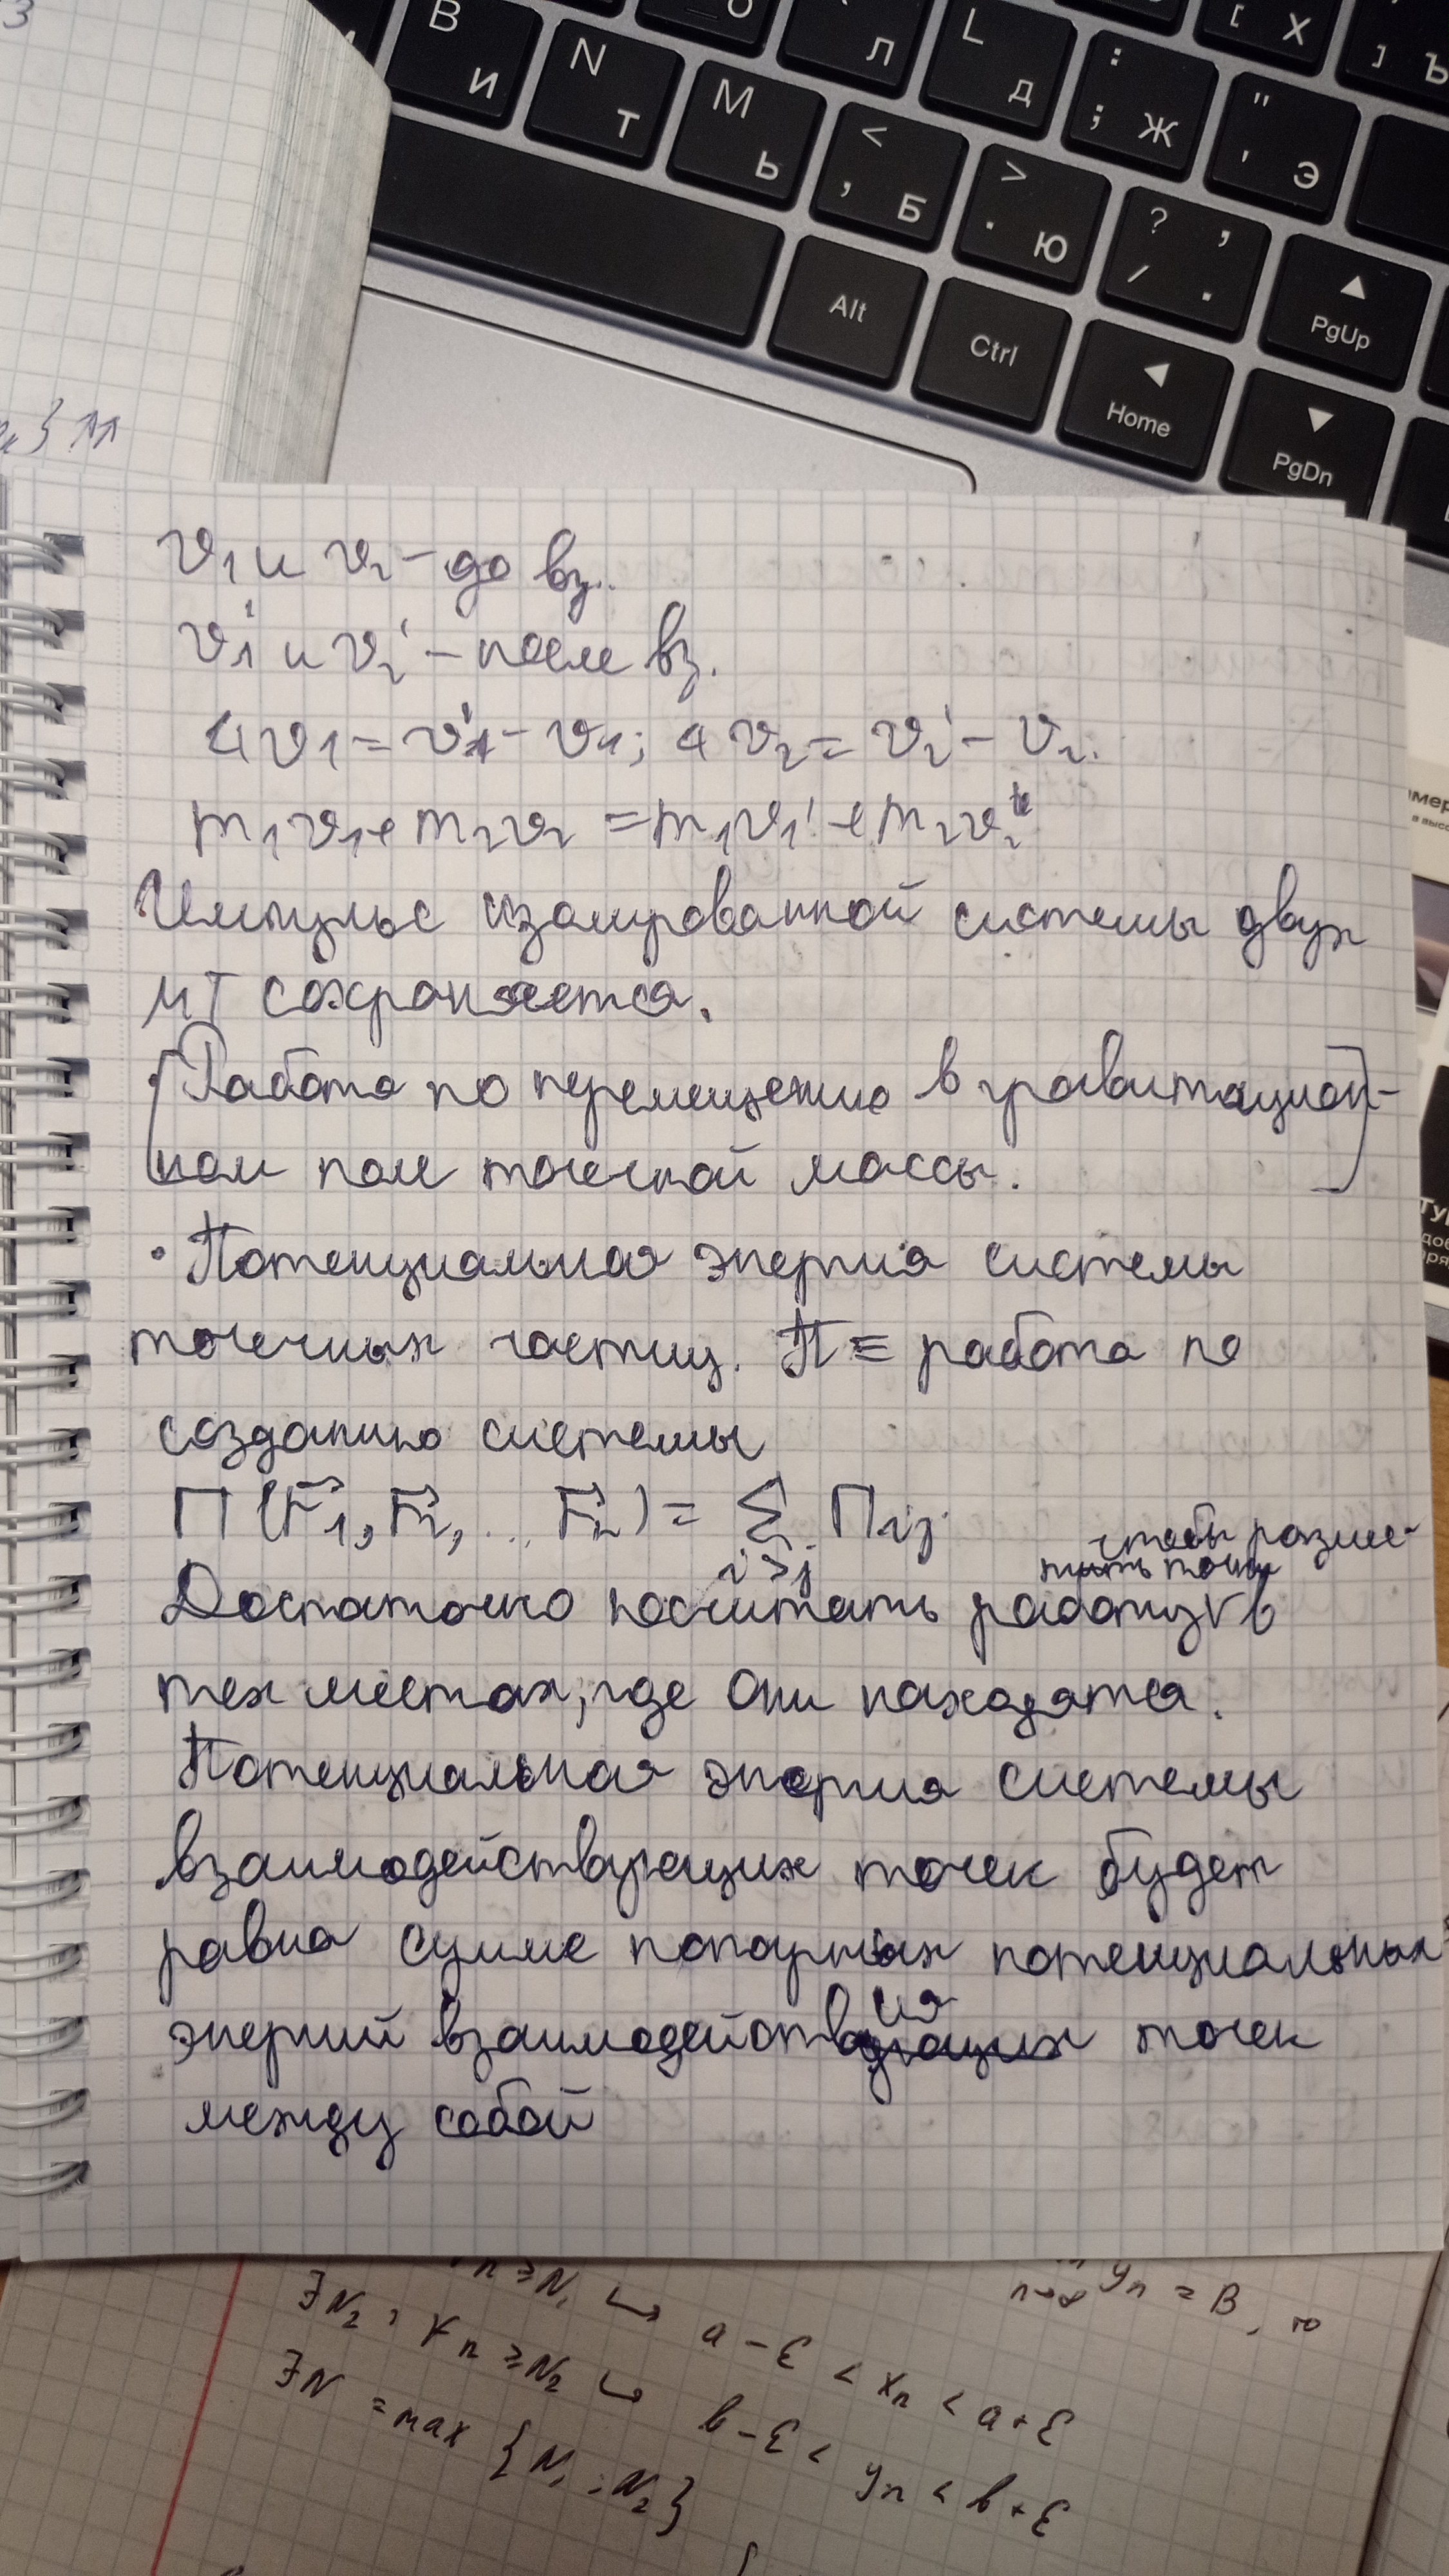 B И
N Т
M Ь
< , Б
> . Ю
? , / .
Л
L Д
: ; Ж
" ' Э
[ Х
] Ъ
Alt
Ctrl
Home
PgUp
PgDn
v₁ и v₂ – до вз.
v₁' и v₂' – после вз.
Δv₁ = v₁' – v₁; Δv₂ = v₂' – v₂.
m₁v₁ + m₂v₂ = m₁v₁' + m₂v₂'
Импульс изолированной системы двух
МТ сохраняется.
[• Работа по перемещению в гравитацион-
ном поле точечной массы.]
• Потенциальная энергия системы
точечных частиц. П ≡ работа по
созданию системы
П (r⃗₁, r⃗₂, ... r⃗ₙ) = Σ Пᵢⱼ
i>j
чтобы разме-
тить точки
Достаточно посчитать работу √ в
тех местах, где они находятся.
Потенциальная энергия системы
взаимодействующих точек будет
равна сумме попарных потенциальных
энергий взаимодействия точек
между собой
∃N₂ : ∀n ≥ N₂ ↪ b-ε < yₙ < b+ε
∃N = max {N₁; N₂}
n ≥ N₁ ↪ a-ε < xₙ < a+ε
yₙ = B, то
n→∞